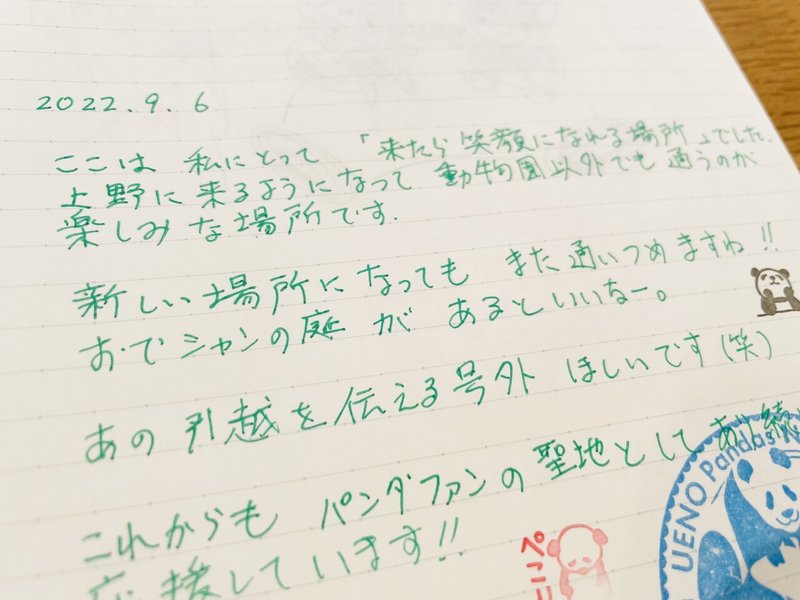 2022.9.6
ここは 私にとって 「来たら笑顔になれる場所」でした.
上野に来るようになって 動物園以外でも 通うのが
楽しみな場所です.
新しい場所になっても また通いつめますね!!
おでシャンの庭 が あるといいなー。
あの 引越を伝える号外 ほしいです(笑)
これからも パンダファンの聖地として あり続
応援しています!!
ぺこ
UENO Pandas